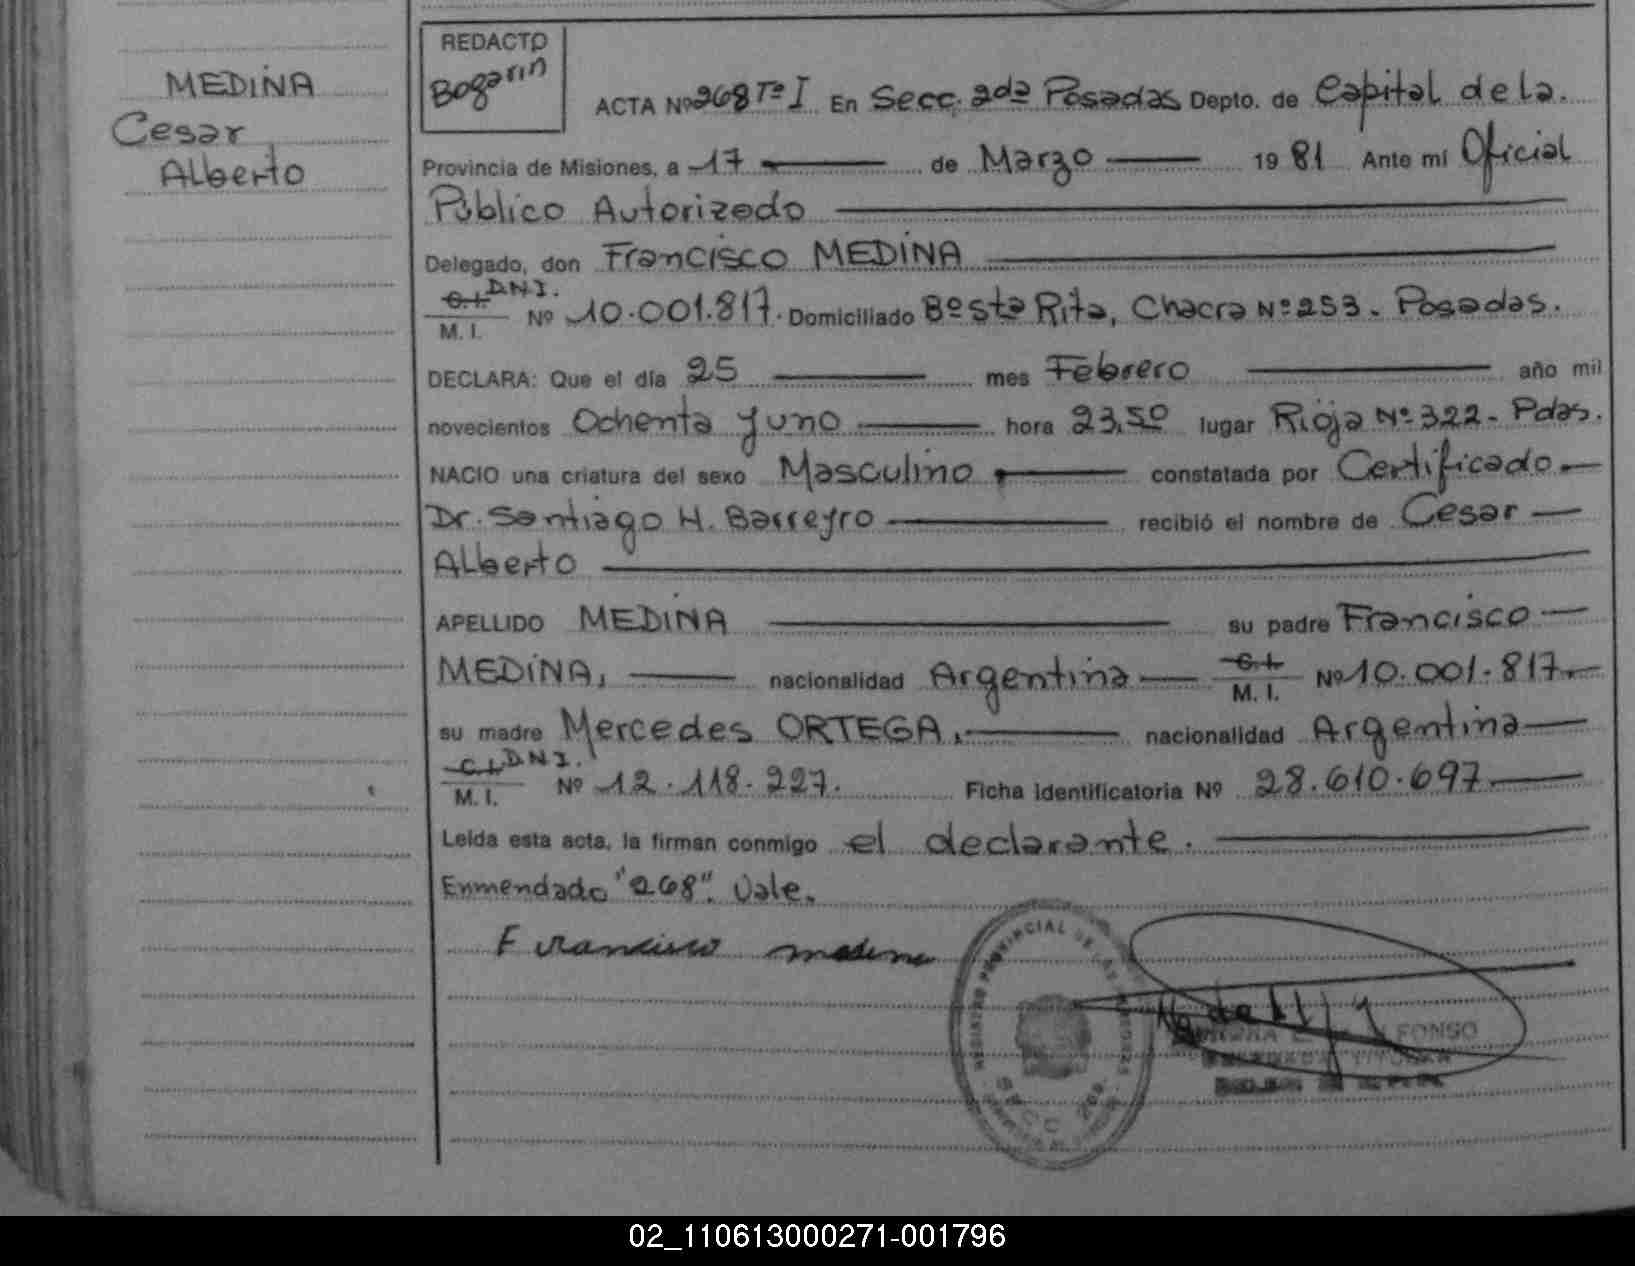 MEDINA
Cesar
Alberto
REDACTO
Bogarin
ACTA Nº 268 Tº I En Secc. 2da Posadas Depto. de Capital de la.
Provincia de Misiones, a 17 de Marzo 1981 Ante mí Oficial
Público Autorizado
Delegado, don Francisco MEDINA
C.I. D.N.I.
M. I. Nº 10.001.817. Domiciliado Bº Sta Rita, Chacra Nº 253. Posadas.
DECLARA: Que el día 25 mes Febrero año mil
novecientos Ochenta y uno hora 23,50 lugar Rioja Nº 322 - Pdas.
NACIO una criatura del sexo Masculino constatada por Certificado
Dr. Santiago H. Barreyro recibió el nombre de Cesar
Alberto
APELLIDO MEDINA su padre Francisco
MEDINA, nacionalidad Argentina C.I. M. I. Nº 10.001.817
su madre Mercedes ORTEGA, nacionalidad Argentina
C.I. D.N.I.
M. I. Nº 12.118.227. Ficha identificatoria Nº 28.610.697
Leída esta acta, la firman conmigo el declarante.
Enmendado "268". Vale.
Francisco medina
REGISTRO PROVINCIAL DE LAS PERSONAS
SECC. 2da
FONSO
TITULAR
02_110613000271-001796